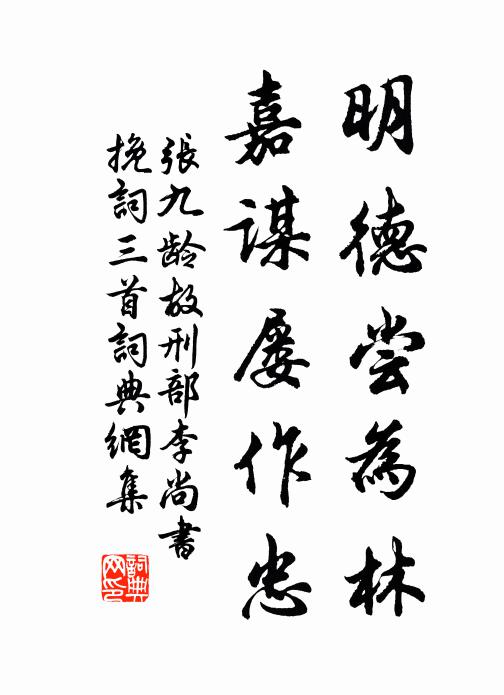 明德尝為林
嘉謀屡作忠
張九龄故刑部李尚書
挽詞三首詞典網集
詞典
网印